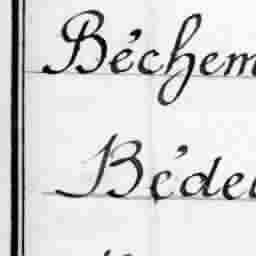 Béchem
Bédel